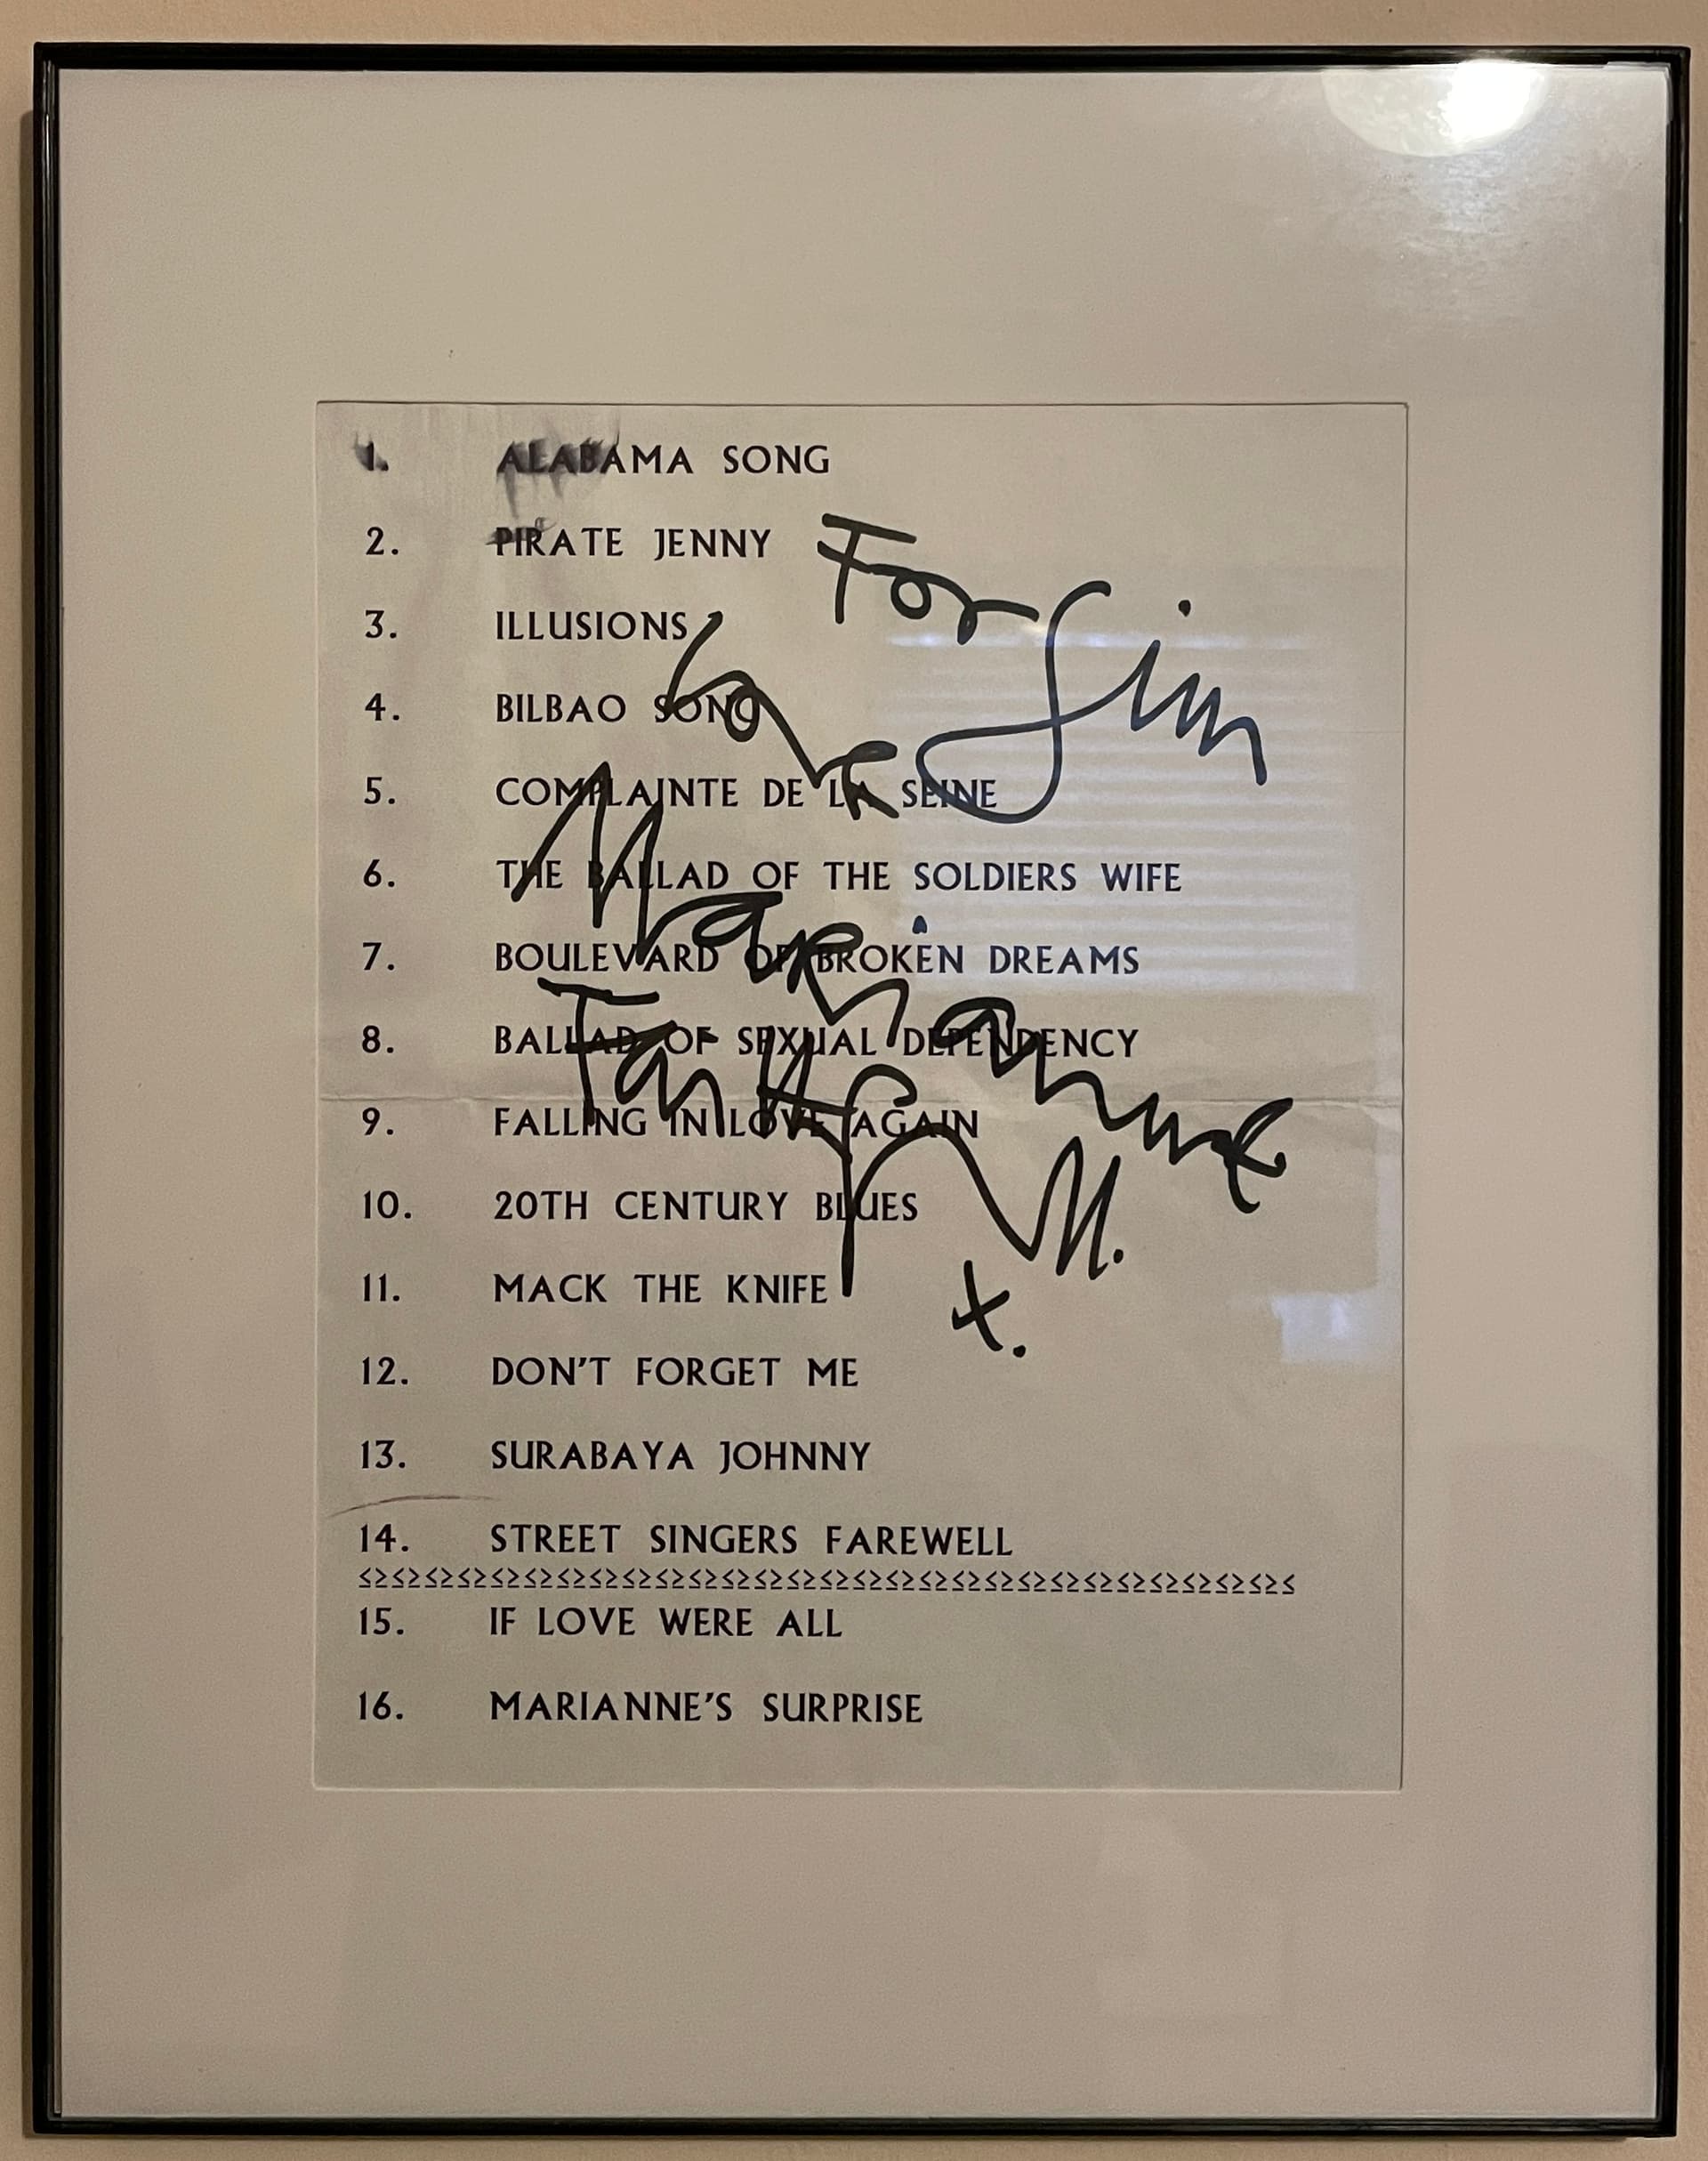 1. ALABAMA SONG
2. PIRATE JENNY
3. ILLUSIONS
4. BILBAO SONG
5. COMPLAINTE DE LA SEINE
6. THE BALLAD OF THE SOLDIERS WIFE
7. BOULEVARD OF BROKEN DREAMS
8. BALLAD OF SEXUAL DEPENDENCY
9. FALLING IN LOVE AGAIN
10. 20TH CENTURY BLUES
11. MACK THE KNIFE
12. DON'T FORGET ME
13. SURABAYA JOHNNY
14. STREET SINGERS FAREWELL
≤≥≤≥≤≥≤≥≤≥≤≥≤≥≤≥≤≥≤≥≤≥≤≥≤≥≤≥≤≥≤≥≤≥≤≥≤≥≤≥≤≥≤≥≤≥≤≥≤≥≤≥≤≥≤≥≤
15. IF LOVE WERE ALL
16. MARIANNE'S SURPRISE
For Jim
Love
Marianne
Faithfull.
x.